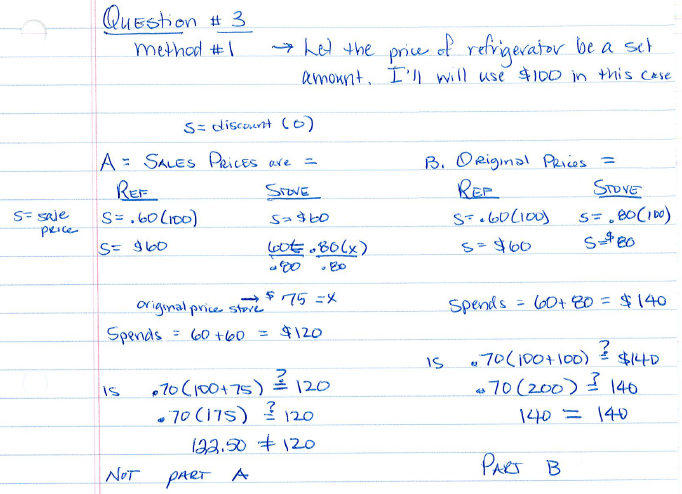 Question # 3
Method #1 → Let the price of refrigerator be a set
amount. I'll will use $100 in this case
S = discount (o)
A = Sales Prices are =
Ref Stove
S = sale price
S = .60(100) S = $60
S = $60 60 = .80(x)
.80 .80
original price stove → $75 = x
Spends = 60 + 60 = $120
is .70(100+75) ?= 120
.70(175) ?= 120
122.50 ≠ 120
Not part A
B. Original Prices =
Ref Stove
S = .60(100) S = .80(100)
S = $60 S = $80
Spends = 60 + 80 = $140
is .70(100+100) ?= $140
.70(200) ?= 140
140 = 140
Part B